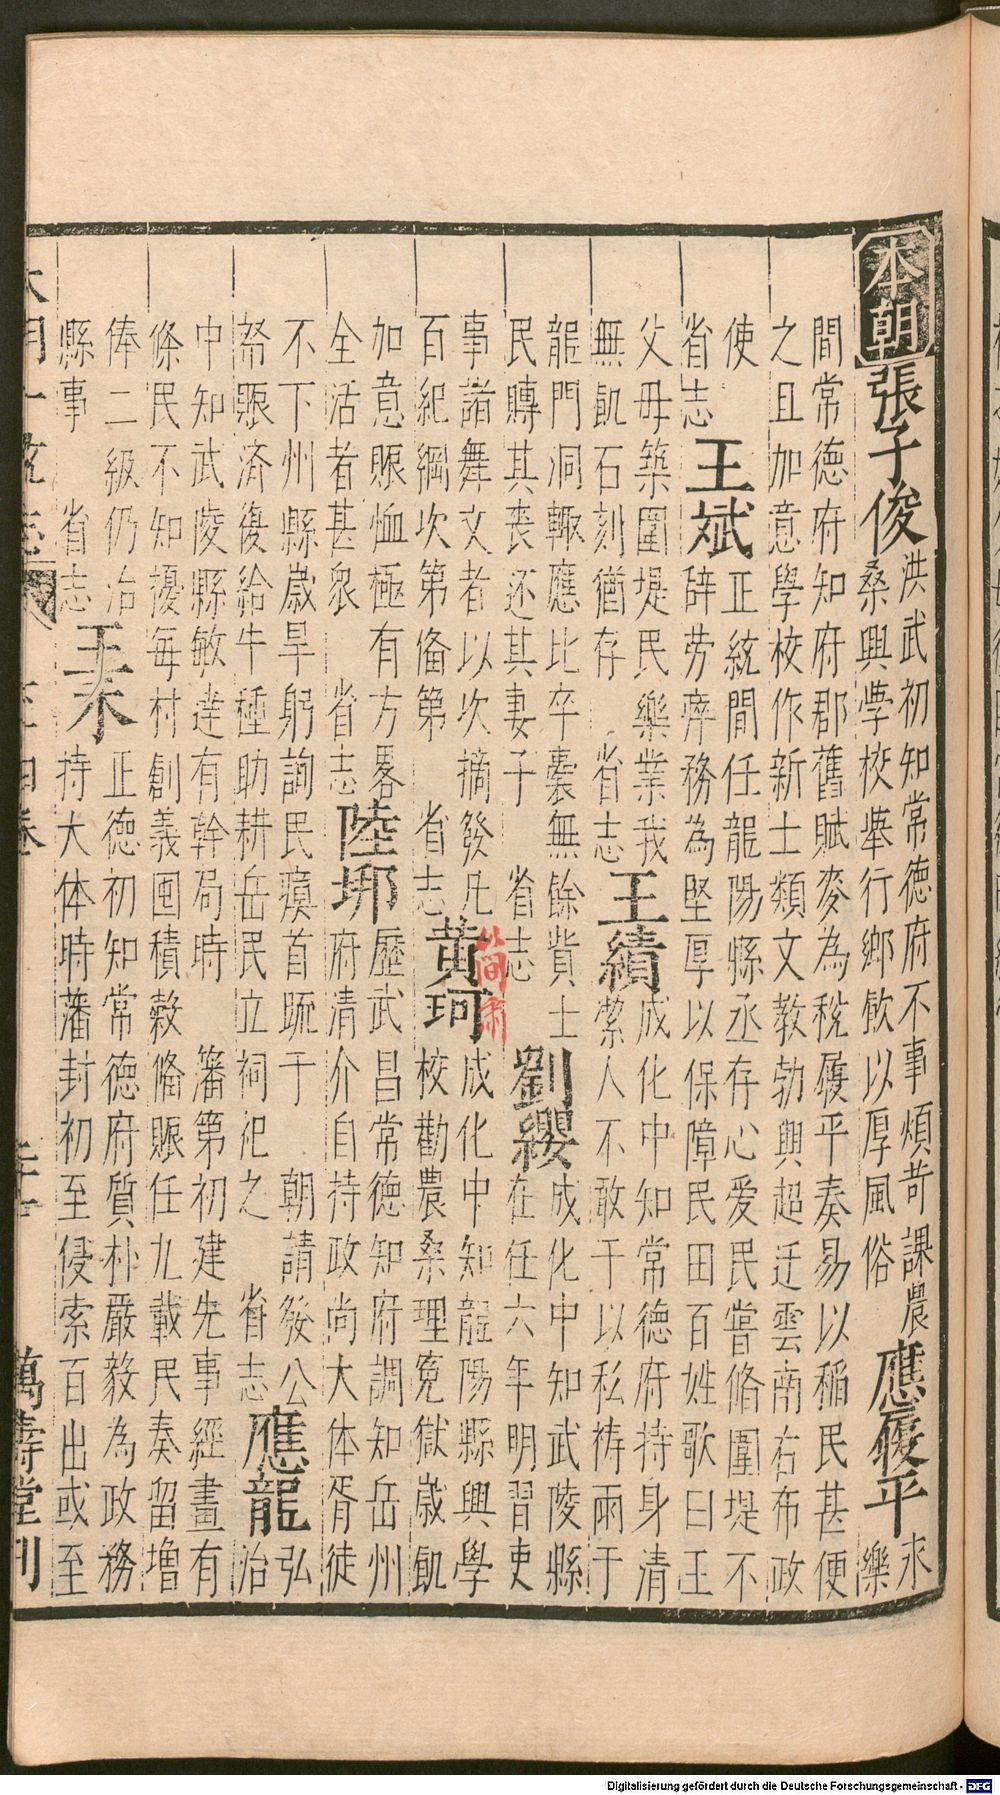 本朝
張子俊
洪武初知常德府不事煩苛課農
桑興學校舉行鄉飲以厚風俗
應履平
永
樂
間常德府知府郡舊賦麥為稅履平奏易以稻民甚便
之且加意學校作新士類文教勃興超迁雲南右布政
使
省志
王斌
正統間任龍陽縣丞存心爱民嘗脩圍堤不
辞劳瘁務為堅厚以保障民田百姓歌曰王
父母築圍堤民樂業我
無飢石刻猶存 省志
王績
成化中知常德府持身清
潔人不敢干以私祷雨于
龍門洞輙應比卒囊無餘貲士
民賻其丧还其妻子 省志
劉纓
成化中知武陵縣
在任六年明習吏
事諸舞文者以次摘發凡
百紀綱次第俻第 省志
黄珂
簡肅
成化中知龍陽縣興學
校勸農桑理寃獄歲飢
加意賑恤極有方畧
全活者甚衆 省志
陸垹
歷武昌常德知府調知岳州
府清介自持政尚大体胥徒
不下州縣歲旱躬詢民瘼首䟽于 朝請發公
帑賑济復給牛種助耕岳民立祠祀之 省志
應龍
弘
治
中知武陵縣敏達有幹局時 藩第初建先事經畫有
條民不知擾每村創義囤積穀俻賑任九載民奏留增
俸二級仍治
縣事 省志
正德初知常德府質朴嚴毅為政務
持大体時藩封初至侵索百出或至
萬壽堂刊
Digitalisierung gefördert durch die Deutsche Forschungsgemeinschaft - DFG